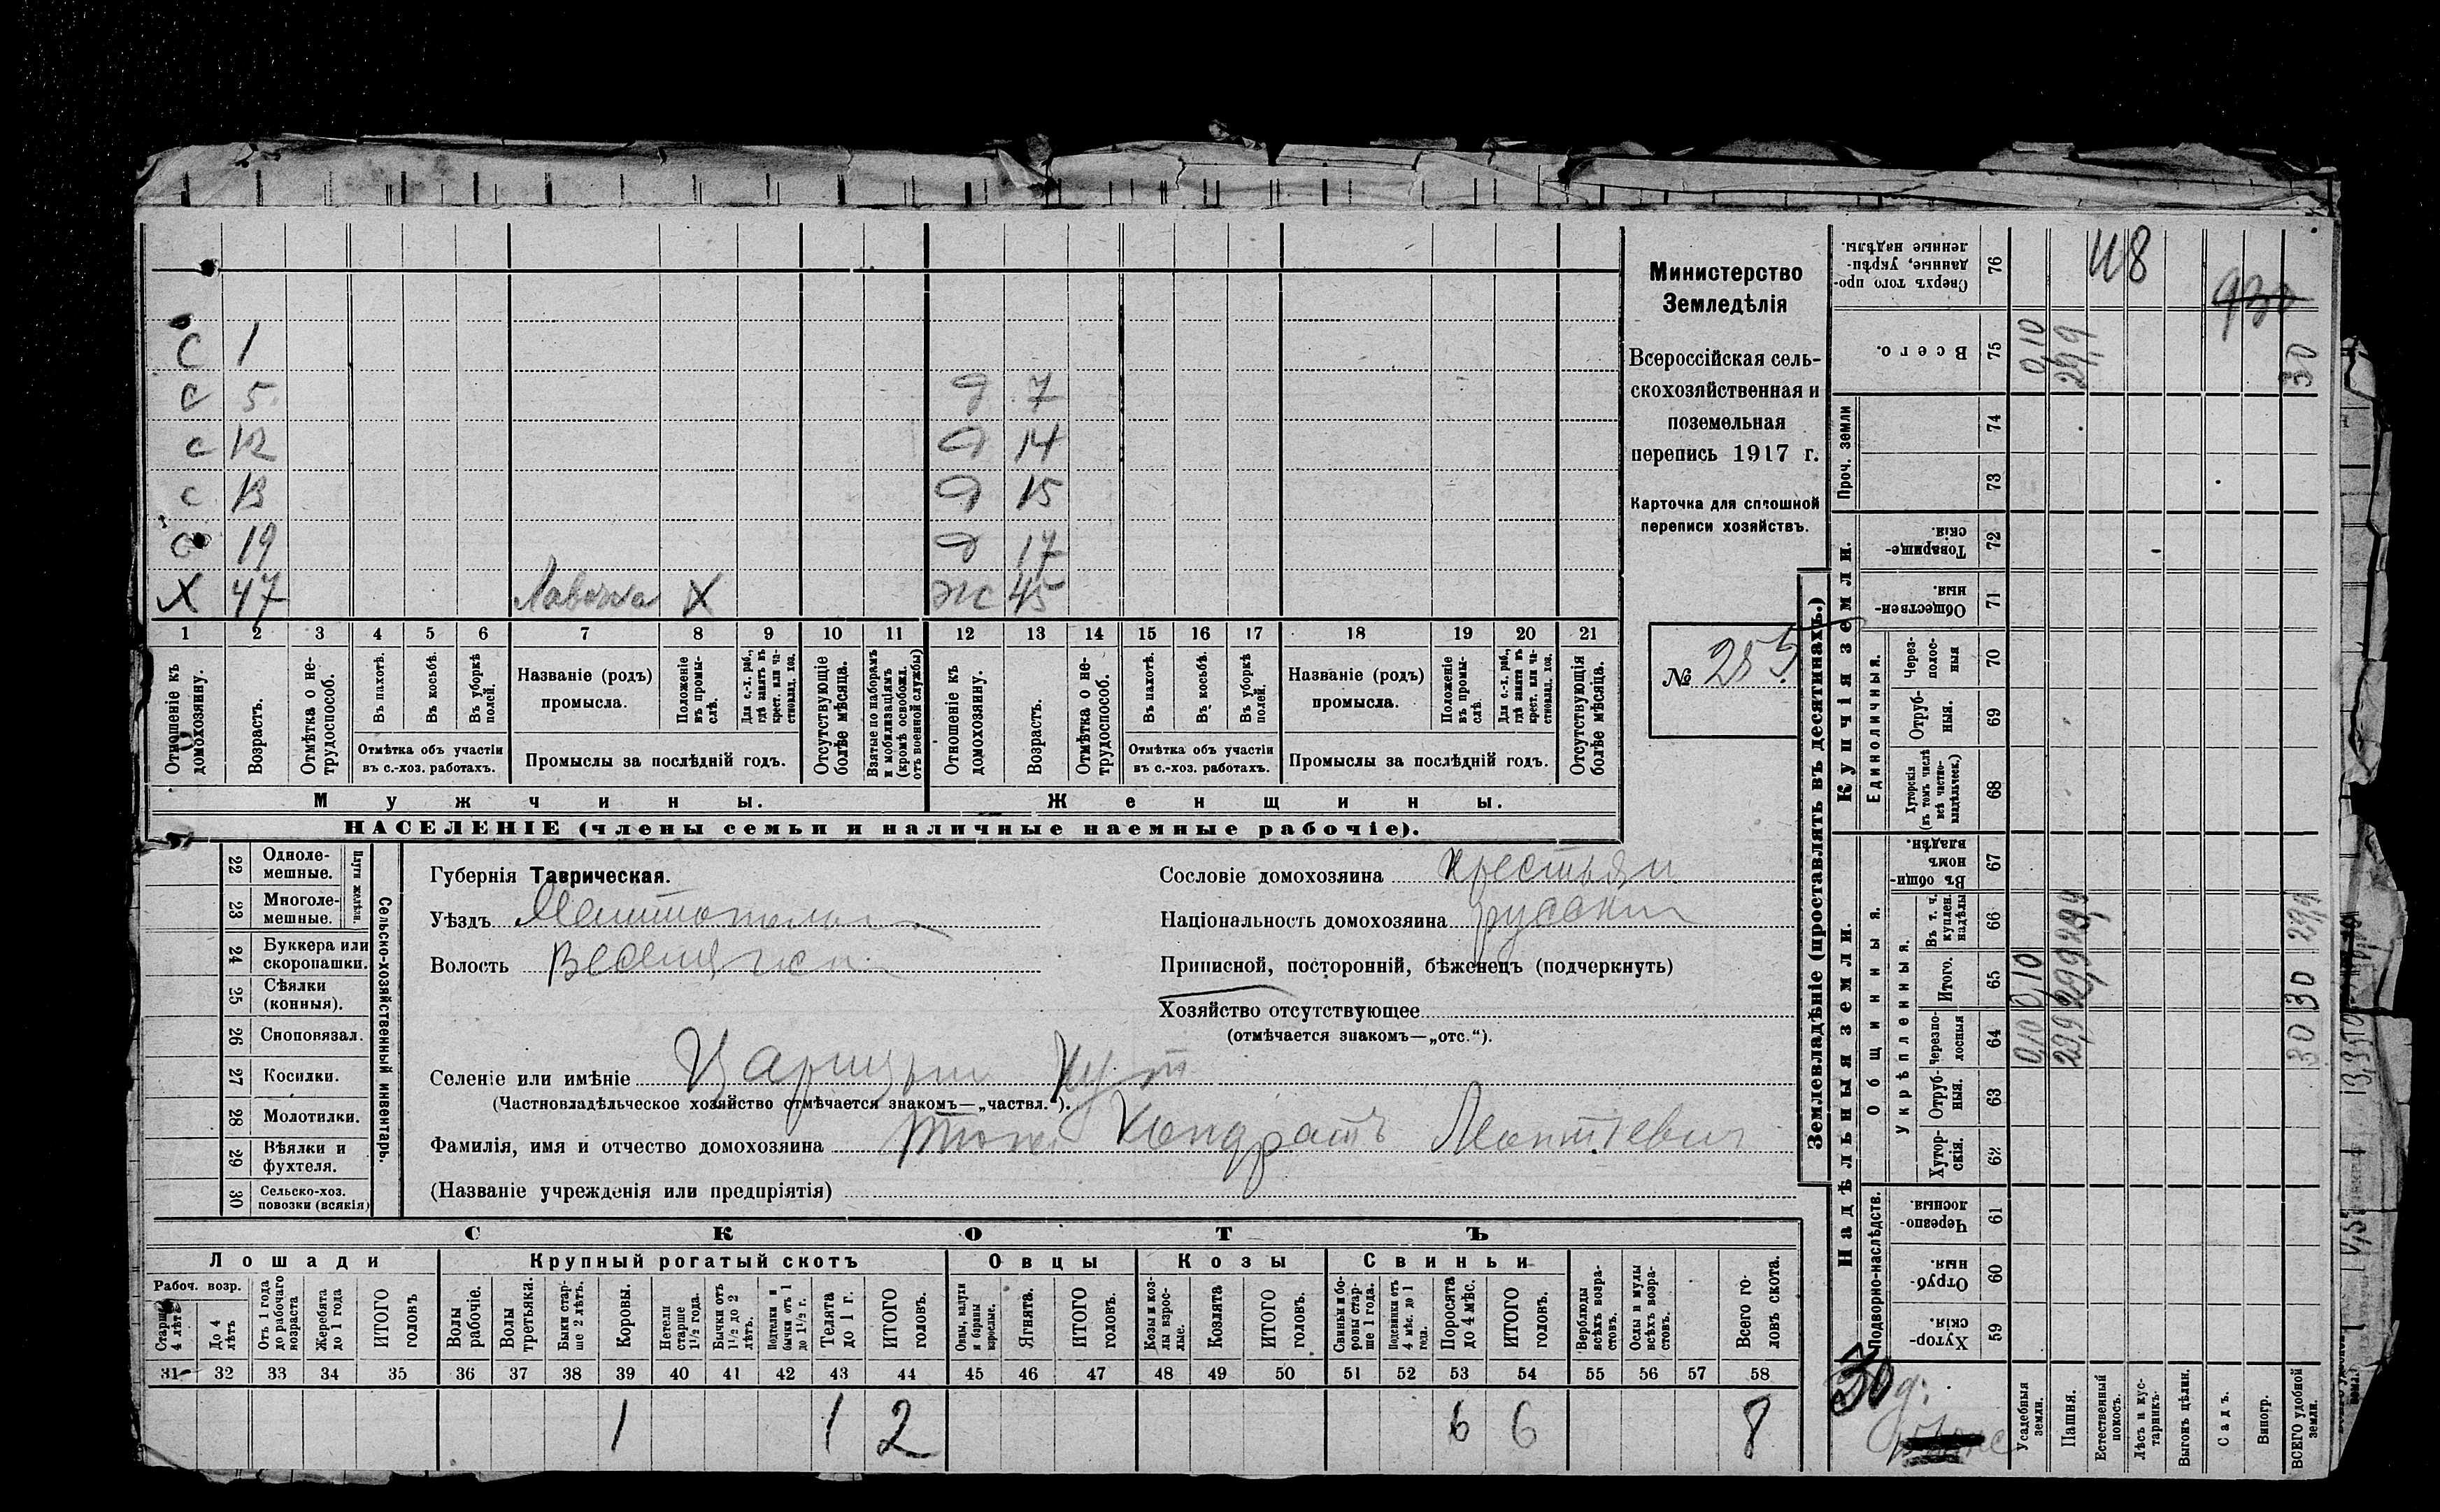 С 1
С 5 д 7
С 12 д 14
С 13 д 15
С 19 д 17
Х 47 Лавочка Х ж 45
1 2 3 4 5 6 7 8 9 10 11 12 13 14 15 16 17 18 19 20 21
Отношеніе къ домохозяину.
Возрастъ.
Отмѣтка о не-трудоспособ.
Въ пахотѣ.
Въ косьбѣ.
Въ уборкѣ полей.
Отмѣтка объ участіи
въ с.-хоз. работахъ.
Названіе (родъ)
промысла.
Положеніе въ промы-слѣ.
Для с.-х. раб., гдѣ занятъ въ крест. или ча-стновлад. хоз.
Промыслы за послѣдній годъ.
Отсутствующіе болѣе мѣсяца.
Взятые по наборамъ и мобилизаціямъ (кромѣ освобожд. отъ военной службы)
Отношеніе къ домохозяину.
Возрастъ.
Отмѣтка о не-трудоспособ.
Въ пахотѣ.
Въ косьбѣ.
Въ уборкѣ полей.
Отмѣтка объ участіи
въ с.-хоз. работахъ.
Названіе (родъ)
промысла.
Положеніе въ промы-слѣ.
Для с.-х. раб., гдѣ занята въ крест. или ча-стновлад. хоз.
Промыслы за послѣдній годъ.
Отсутствующія болѣе мѣсяца.
Мужчины.
Женщины.
НАСЕЛЕНІЕ (члены семьи и наличные наемные рабочіе).
Министерство
Земледѣлія
Всероссійская сель-
скохозяйственная и
поземельная
перепись 1917 г.
Карточка для сплошной
переписи хозяйствъ.
№ 255
22 Одноле-мешные.
23 Многоле-мешные.
Плуги желѣзн.
24 Буккера или скоропашки.
25 Сѣялки (конныя).
26 Сноповязал.
27 Косилки.
28 Молотилки.
29 Вѣялки и фухтеля.
30 Сельско-хоз. повозки (всякія)
Сельско-хозяйственный инвентарь.
Губернія Таврическая.
Уѣздъ Мелитополь
Волость
Селеніе или имѣніе Царицын Кут
(Частновладѣльческое хозяйство отмѣчается знакомъ—„частвл.").
Фамилія, имя и отчество домохозяина Кондратъ
(Названіе учрежденія или предпріятія)
Сословіе домохозяина крестьян
Національность домохозяина русский
Приписной, посторонній, бѣженецъ (подчеркнуть)
Хозяйство отсутствующее
(отмѣчается знакомъ—„отс.").
СКОТЪ
Лошади Крупный рогатый скотъ Овцы Козы Свиньи
Рабоч. возр.
Старше 4 лѣтъ
До 4 лѣтъ
Отъ 1 года до рабочаго возраста
Жеребята до 1 года
ИТОГО головъ
Волы рабочіе.
Волы третьяки.
Быки стар-ше 2 лѣтъ.
Коровы.
Нетели старше 1½ года.
Бычки отъ 1½ до 2 лѣтъ.
Подтелки и бычки отъ 1 до 1½ г.
Телята до 1 г.
ИТОГО головъ.
Овцы, валухи и бараны взрослые.
Ягнята.
ИТОГО головъ.
Козы и коз-лы взрос-лые.
Козлята
ИТОГО головъ.
Свиньи и бо-ровы стар-ше 1 года.
Подсвинки отъ 4 мѣс. до 1 года.
Поросята до 4 мѣс.
ИТОГО головъ.
Верблюды всѣхъ возра-стовъ.
Ослы и мулы всѣхъ возра-стовъ.
Всего го-ловъ скота.
31 32 33 34 35 36 37 38 39 40 41 42 43 44 45 46 47 48 49 50 51 52 53 54 55 56 57 58
1 1 2 6 6 8
Землевладѣніе (проставлять въ десятинахъ.)
Купчія земли.
Надѣльныя земли.
Сверхъ того про-данные, укрѣп-ленные надѣлы. 76
Всего. 75 0,10 29,9 30
48
930
Проч. земли 74 73
Товарище-скія. 72
Обществен-ныя. 71
Единоличныя.
Через-полос-ныя 70
Отруб-ныя. 69
Хуторскія (въ томъ числѣ всѣ частно-владѣльческ.) 68
Общинныя.
Въ общи-номъ владѣн. 67
Укрѣпленныя.
Въ т. ч. куплен. надѣлы 66 29,9 29,9
Итого. 65 0,10 29,9 30
Черезпо-лосныя 64 0,10 29,9 30
Отруб-ныя. 63
Хутор-скія. 62
Подворно-наслѣдств.
Черезпо-лосныя 61
Отруб-ныя 60
Хутор-скія. 59
30 д.
Усадебныя земли.
Пашня.
Естественный покосъ.
Лѣсъ и кус-тарникъ.
Выгонъ цѣлин.
Садъ.
Виногр.
ВСЕГО удобной земли.